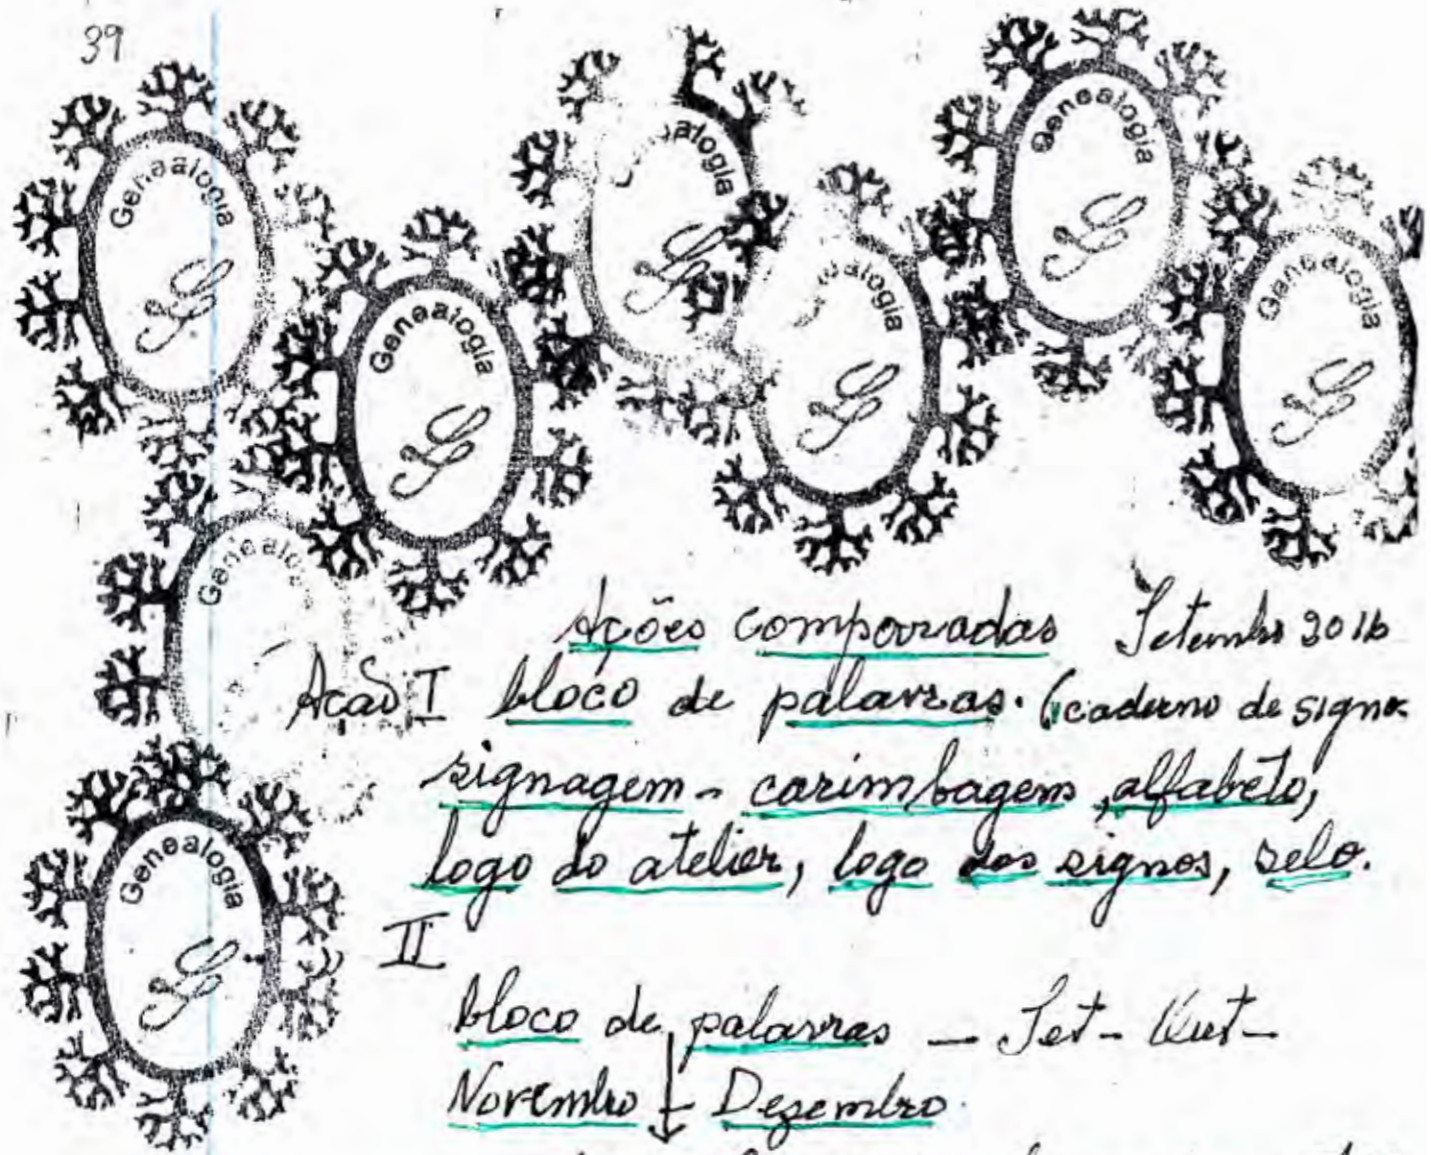 39
Genealogia
Genealogia
alogia
alogia
Genealogia
Genealogia
Genealo
Genealogia
Ações comporradas Setembro 2016
Acão I bloco de palavras. (caderno de signos
signagem - carimbagem, alfabeto,
logo do atelier, logo dos signos, selo.
II
bloco de palavras - Set - Out -
Novembro - Dezembro.